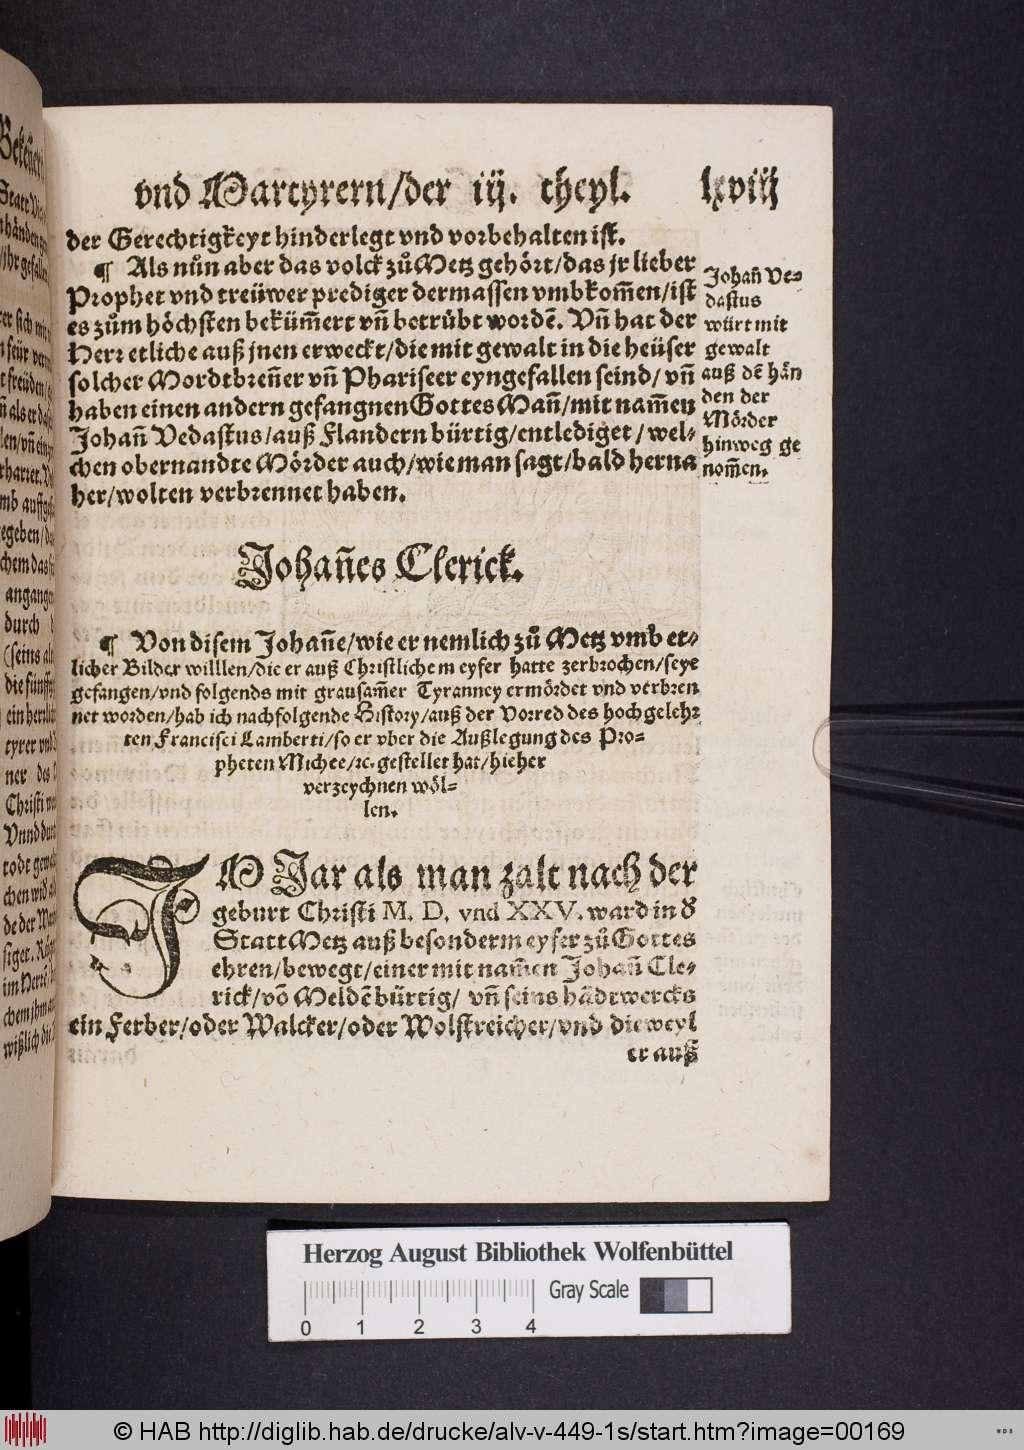 vnd Martyrern/der iij. theyl. lxviij
der Gerechtigkeyt hinderlegt vnd vorbehalten ist.
¶ Als nůn aber das volck zů Metz gehört/das jr lieber
Prophet vnd treüwer prediger dermassen vmbkom̄en/ist
es zům höchsten beküm̄ert vn̄ betrůbt wordē. Vn̄ hat der
Herr etliche auß jnen erweckt/die mit gewalt in die heüser
solcher Mordtbren̄er vn̄ Phariseer eyngefallen seind/vn̄
haben einen andern gefangnen Gottes Man̄/mit nam̄en
Johan̄ Vedastus/auß Flandern bürtig/entlediget/wel⸗
chen obernandte Mörder auch/wie man sagt/bald herna
her/wolten verbrennet haben.
Johan̄ Ve⸗
dastus
würt mit
gewalt
auß dē hān
den der
Mörder
hinweg ge
nom̄en.
Johan̄es Clerick.
¶ Von disem Johan̄e/wie er nemlich zů Metz vmb et⸗
licher Bilder willlen/die er auß Christlichem eyfer hatte zerbrochen/seye
gefangen/vnd folgends mit grausam̄er Tyranney ermördet vnd verbren
net worden/hab ich nachfolgende History/auß der Vorred des hochgelehr
ten Francisci Lamberti/so er vber die Außlegung des Pro⸗
pheten Michee/ꝛc. gestellet hat/hieher
verzeychnen wöl⸗
len.
IM Jar als man zalt nach der
geburt Christi M. D. vnd XXV. ward in d̓
Statt Metz auß besonderm eyfer zů Gottes
ehren/bewegt/einer mit nam̄en Johan̄ Cle⸗
rick/vō Meldē bürtig/vn̄ seins hādtwercks
ein Ferber/oder Walcker/oder Wolstreicher/vnd dieweyl
er auß
Herzog August Bibliothek Wolfenbüttel
Gray Scale
0 1 2 3 4
© HAB http://diglib.hab.de/drucke/alv-v-449-1s/start.htm?image=00169